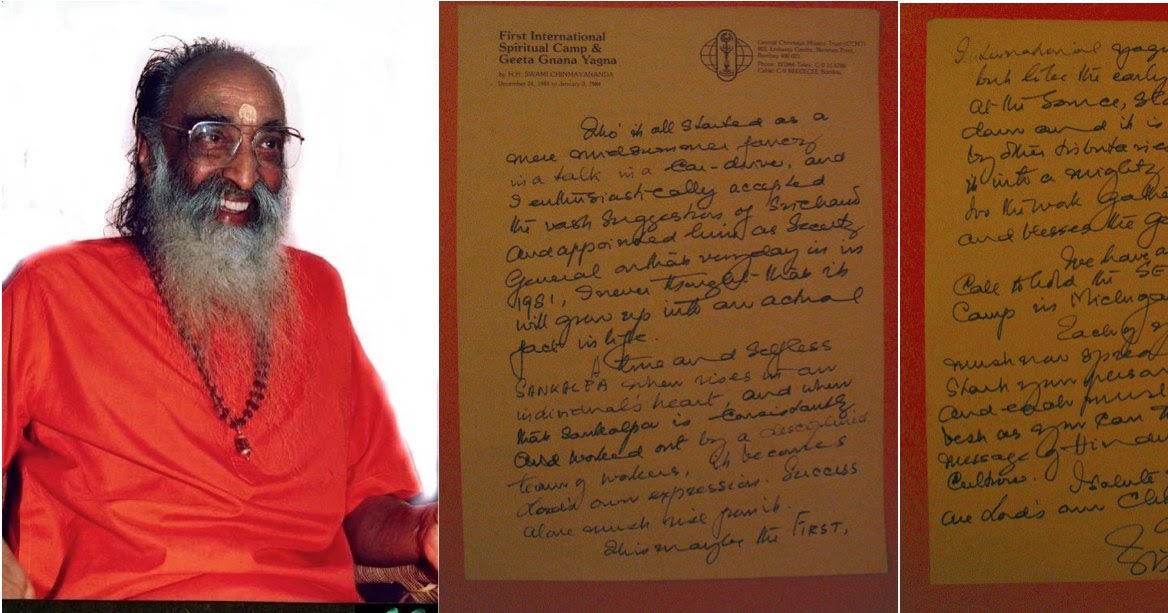 First International
Spiritual Camp &
Geeta Gnana Yagna
by H.H. SWAMI CHINMAYANANDA
December 24, 1983 to January 2, 1984
Central Chinmaya Mission Trust (CCMT)
Bombay 400 021
Tho' it all started as a
mere midsummer fancy
in a talk in a Car-drive, and
I enthusiastically accepted
the rash suggestion of Srichand
and appointed him as Security
General on that very day in in
1981, I never thought that it
will grow up into an actual
fact in life.
A time and selfless
SANKALPA when rises in an
individual's heart, and when
that Sankalpa is consistantly
and worked out by a disciplined
team of workers, it becomes
Lord's own expression. Success
alone must rise from it.
This may be the FIRST,
International yagn
but like the early
at the Source, sta
down and it is
by other tributaries
it into a mighty
so the work gathe
and blesses the ge
I've have a
Call to hold the SE
Camp in Michiga
Each of y
must now spread
Start your person
and each must
best as you can t
message of Hindu
Culture. I salute
are Lord's own Chi